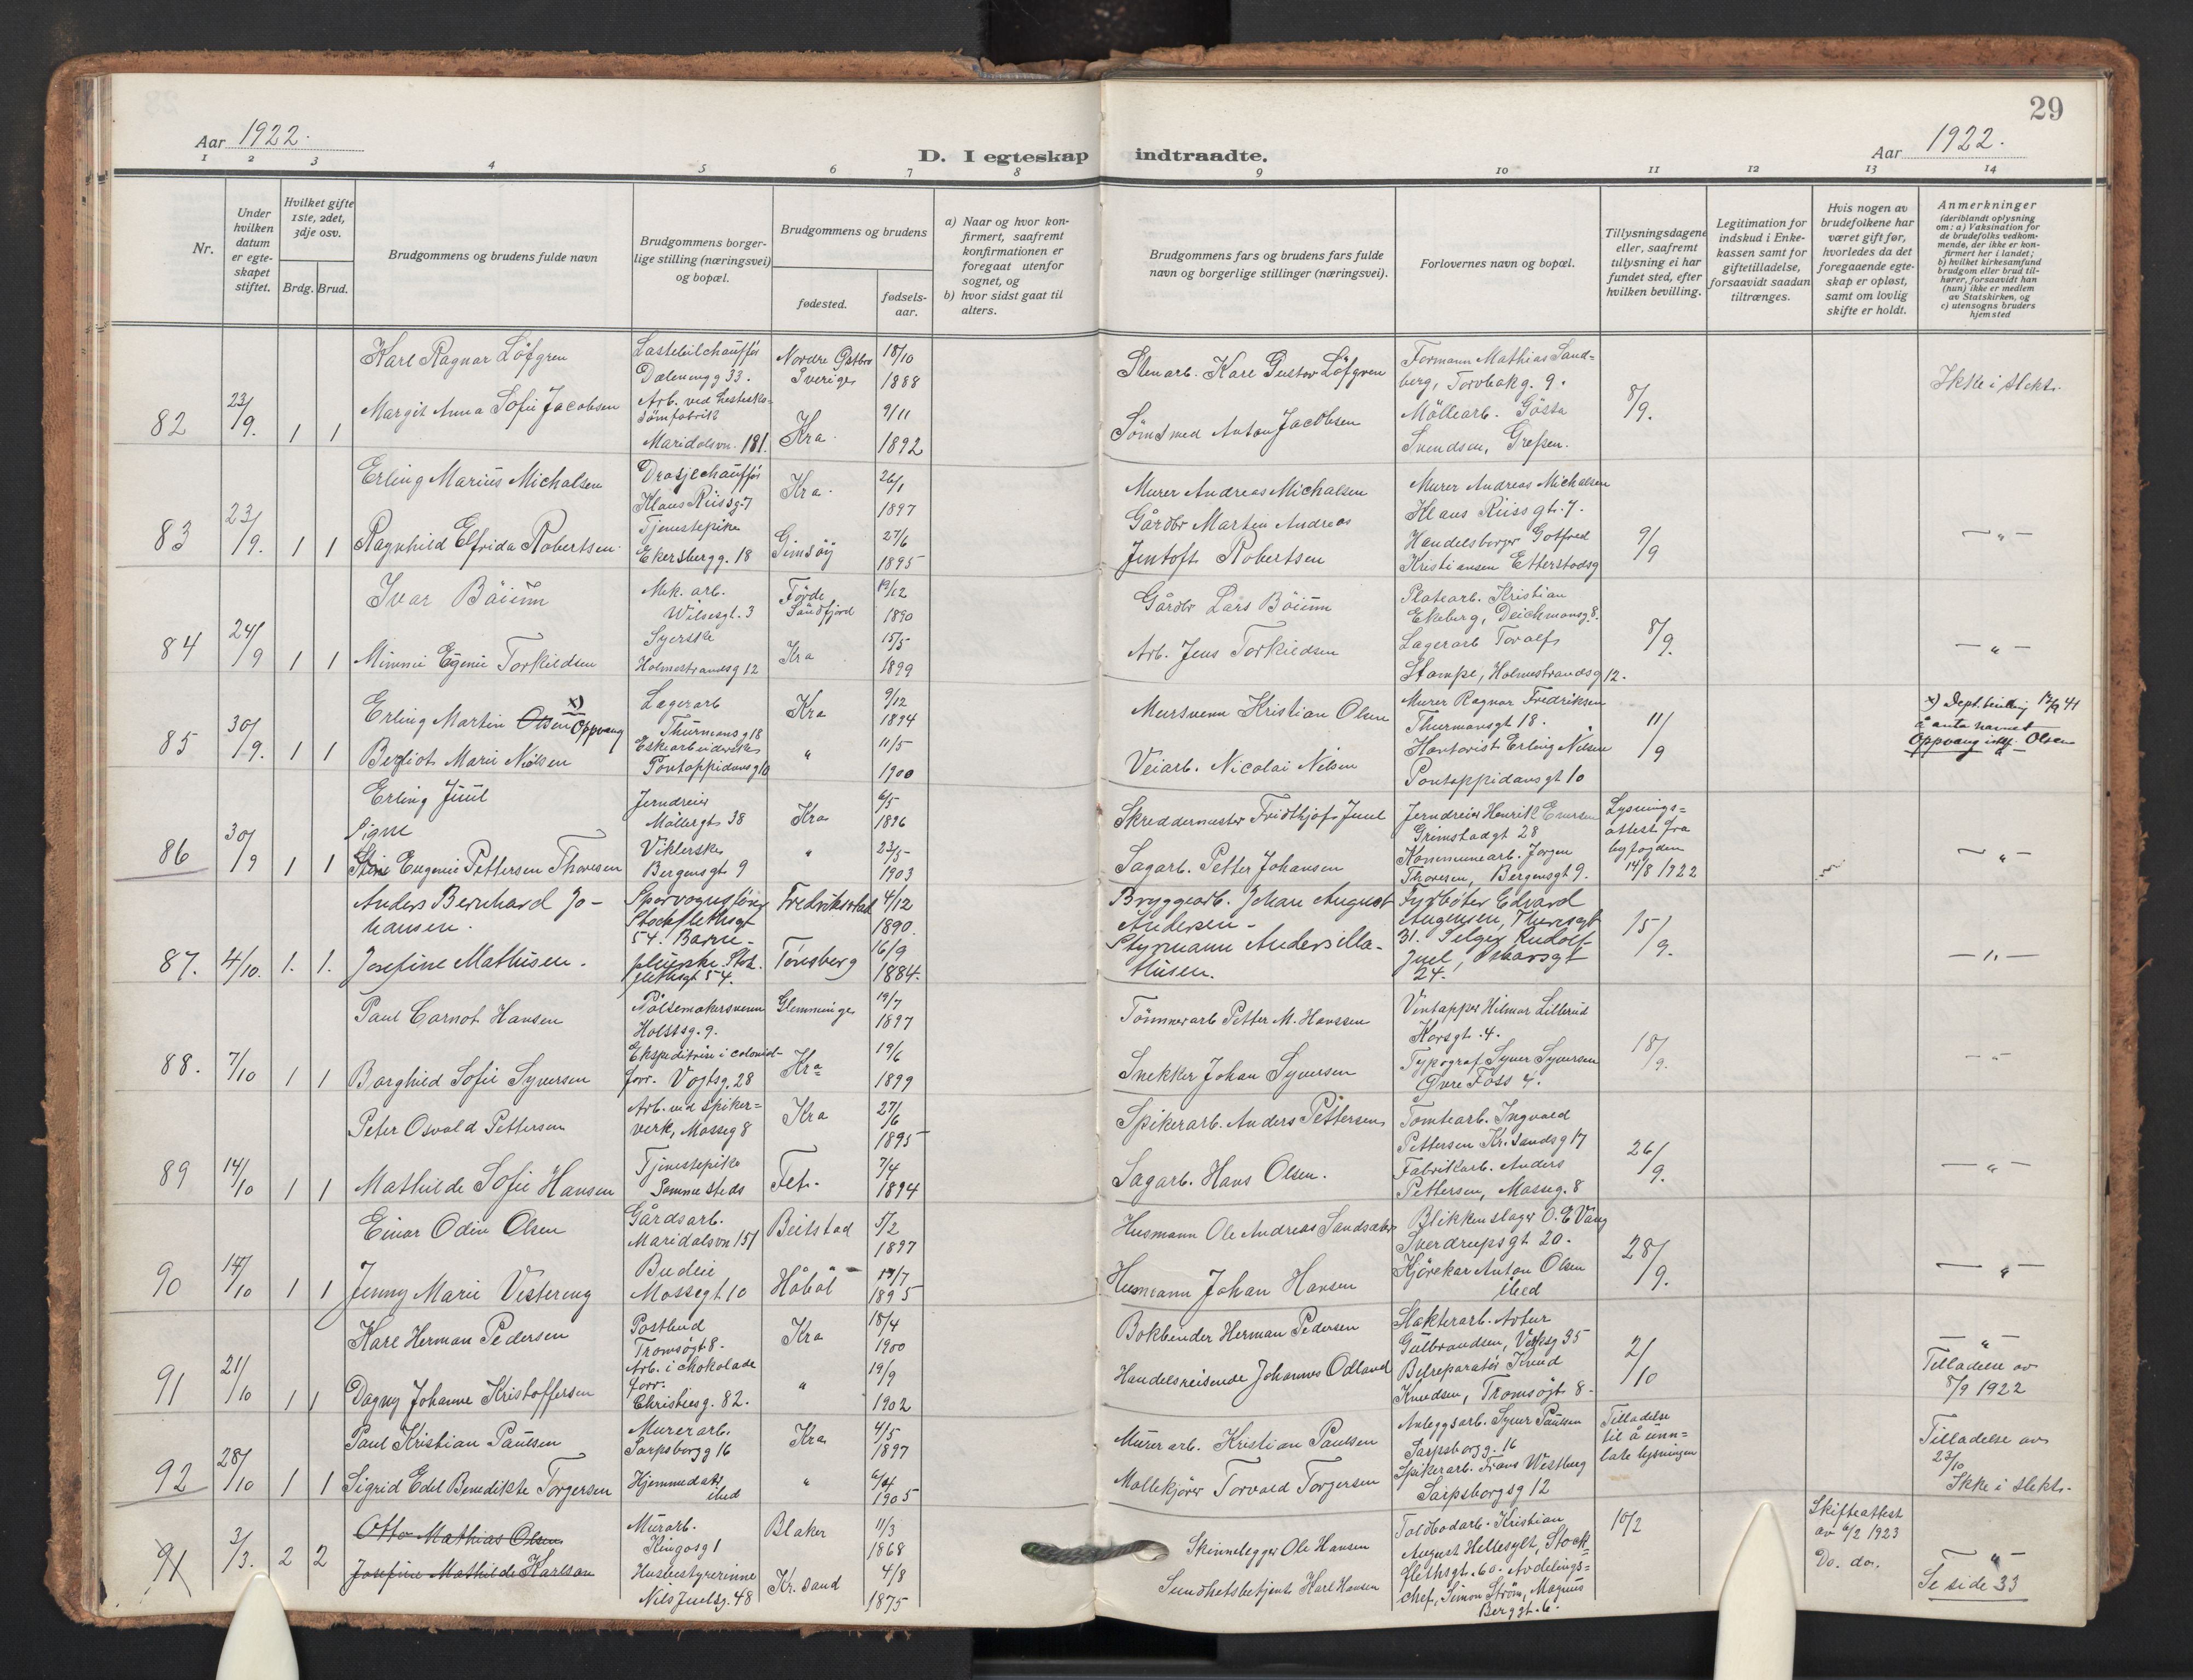 29
Aar 1922.
D. I egteskap indtraadte.
Aar 1922.
1 2 3 4 5 6 7 8 9 10 11 12 13 14
Nr.
Under hvilken datum er egteskapet stiftet.
Hvilket gifte 1ste, 2det, 3dje osv.
Brdg. Brud.
Brudgommens og brudens fulde navn
Brudgommens borgerlige stilling (næringsvei) og bopæl.
Brudgommens og brudens
fødested.
fødselsaar.
a) Naar og hvor konfirmert, saafremt konfirmationen er foregaat utenfor sognet, og
b) hvor sidst gaat til alters.
Brudgommens fars og brudens fars fulde navn og borgerlige stillinger (næringsvei).
Forlovernes navn og bopæl.
Tillysningsdagene eller, saafremt tillysning ei har fundet sted, efter hvilken bevilling.
Legitimation for indskud i Enkekassen samt for giftetilladelse, forsaavidt saadan tiltrænges.
Hvis nogen av brudefolkene har været gift før, hvorledes da det foregaaende egteskap er opløst, samt om lovlig skifte er holdt.
Anmerkninger
(deriblandt oplysning om: a) Vaksination for de brudefolks vedkommende, der ikke er konfirmert her i landet; b) hvilket kirkesamfund brudgom eller brud tilhører, forsaavidt han (hun) ikke er medlem av Statskirken, og c) utensogns bruders hjemsted
82 23/9. 1 1
Karl Ragnar Löfgren
Lastebilchauffør
Dælenengg 33.
Sverige
18/10 1888
Margit Anna Sofie Jacobsen
Arb. ved hestesko-
sömfabrik
Maridalsvn. 181.
Kra.
9/11 1892
Stenarb. Karl Gustav Löfgren
Sömsmed Anton Jacobsen
Formann Mathias Sand-
berg, Torvbakg. 9.
Möllearb. Gösta
Svendsen, Grefsen.
8/9.
Ikke i slekt.
83 23/9. 1 1
Erling Marius Michalsen
Drosjechauffør
Klaus Riisg. 7
Kra.
26/1 1897
Ragnhild Elfrida Robertsen
Tjenestepike
Ekersbergg. 18
Gimsöy
27/6 1895
Murer Andreas Michalsen
Gårdbr Martin Andreas
Jentoft Robertsen
Murer Andreas Michalsen
Klaus Riisgt. 7.
Handelsborger Gotfred
Kristiansen Etterstadsg
9/9
— " —
84 24/9 1 1
Ivar Böium
Mek. arb.
Wilsesgt. 3
Førde
Söndfjord
19/12 1890
Mimmi Eugenie Torkildsen
Syerske
Holmestrandsg 12
Kra
15/5 1899
Gårdbr Lars Böium
Arb. Jens Torkildsen
Platearb. Kristian
Ekeberg, Deichmansg. 8.
Lagerarb Toralf
Stampe, Holmestrandsg 12.
8/9.
— " —
85 30/9. 1 1
Erling Martin Olsen x) Oppvang
Lagerarb
Thurmansg 18
Kra
9/12 1894
Bergliot Marie Nielsen
Eskearbeiderske
Pontoppidansg 10
"
11/5 1900
Mursvenn Kristian Olsen
Veiarb. Nicolai Nilsen
Murer Ragnar Fredriksen
Thurmansgt 18.
Kontorist Erling Nilsen
Pontoppidansgt 10
11/9
x) Dept. bevilling 12/9 41
å anta navnet
Oppvang istf. Olsen
86 30/9 1 1
Erling Juul
Jerndreier
Möllergt 38
Kra
6/5 1896
Signe
Eugenie Pettersen Thoresen
Viklerske
Bergensgt 9
"
23/5 1903
Skreddermester Fridthjof Juul
Sagarb. Petter Johansen
Jerndreier Henrik Evensen
Grimstadgt 28
Kommunearb. Jørgen
Thoresen, Bergensgt 9.
Lysnings=
attest fra
byfogden
14/8 1922
— " —
87. 4/10. 1. 1.
Anders Bernhard Jo-
hansen.
Sporvognsfører
Stockflethsgt
54. Barne-
Fredrikstad
4/12 1890.
Josefine Mathisen.
pleierske. Stock-
flethsgt 54.
Tønsberg
16/9 1884.
Bryggearb. Johan August
Andersen -
Styrmann Anders
Fyrbøter Edvard
31. Selger Rudolf
Juel, Oskarsgt
24.
15/9.
— " —
88. 7/10 1 1
Paul Carnot Hansen
Pölsemakersvenn
Holstsg. 9.
Glemminge
19/7 1897
Borghild Sofie Syversen
Ekspeditrise i colonial-
forr. Vogtsg. 28
Kra
19/6 1899
Tömmerarb Petter M. Hanssen
Snekker Johan Syversen
Vintapper Hilmar Lillerud
Korsgt. 4.
Typograf Syver Syversen
Øvre Foss 4.
18/9.
— " —
89 14/10 1 1
Peter Osvald Pettersen
Arb. ved spiker=
verk, Mosseg 8
Kra
27/6 1895
Mathilde Sofie Hansen
Tjenestepike
Samme steds
Fet.
7/4 1894
Spikerarb. Anders Pettersen
Sagarb. Hans Olsen.
Tomtearb. Ingvald
Pettersen Kr.sandsg 17
Fabrikarb. Anders
Pettersen, Mosseg. 8
26/9.
— " —
90 14/10 1 1
Einar Odin Olsen
Gårdsarb.
Maridalsvn 151
Beitstad
5/2 1897
Jenny Marie Vestereng
Budeie
Mossegt. 10
Håböl
17/7 1895
Husmann Ole Andreas
Husmann Johan Hansen
Blikkenslager O. E Vang
Sverdrupsgt 20.
Kjörekar Anton Olsen
ibid
28/9.
— " —
91 21/10 1 1
Karl Herman Pedersen
Postbud
Tromsögt 8.
Kra
18/4 1900
Dagny Johanne Kristoffersen
Arb. i chokolade
forr.
Christiesg. 82.
"
19/9 1902
Bokbinder Herman Pedersen
Handelsreisende Johannes Odland
Slakterarb. Artur
Gulbrandsen, Verksg 35
Bilreparatör Knud
Knudsen, Tromsögt 8.
2/10
— " —
Tilladelse av
8/9 1922
92 28/10 1 1
Paul Kristian Paulsen
Murerarb.
Sarpsborgg 16
Kra
4/5 1897
Sigrid Edel Benedikte Torgersen
Hjemmedatt.
ibid
"
1905
Murerarb. Kristian Paulsen
Mollekjörer Torvald Torgersen
Anleggsarb. Syver Paulsen
Sarpsborgg. 16
Spikerarb. Frans Westberg
Sarpsborgsg 12
Tilladelse
til å unn=
late lysningen
Tilladelse av
23/10
Ikke i slekt.
91 3/3. 2 2
Otto Mathias Olsen
Murarb.
Kingosg 1
Blaker
11/3 1868
Josefine Mathilde Karlsen
Husbestyrerinne
Nils Juelsg. 48
Kr.sand
4/8 1875
Skinnelegger Ole Hansen
Sundhetsbetjent Karl Hansen
Toldbodarb. Kristian
August Hellesylt, Stock-
flethsgt. 60. Avdelings=
chef, Simon Ström, Magnus
Berggt. 6.
10/2
Skifteattest
av 6/2 1923
Do. do.
— " —
Se side 33